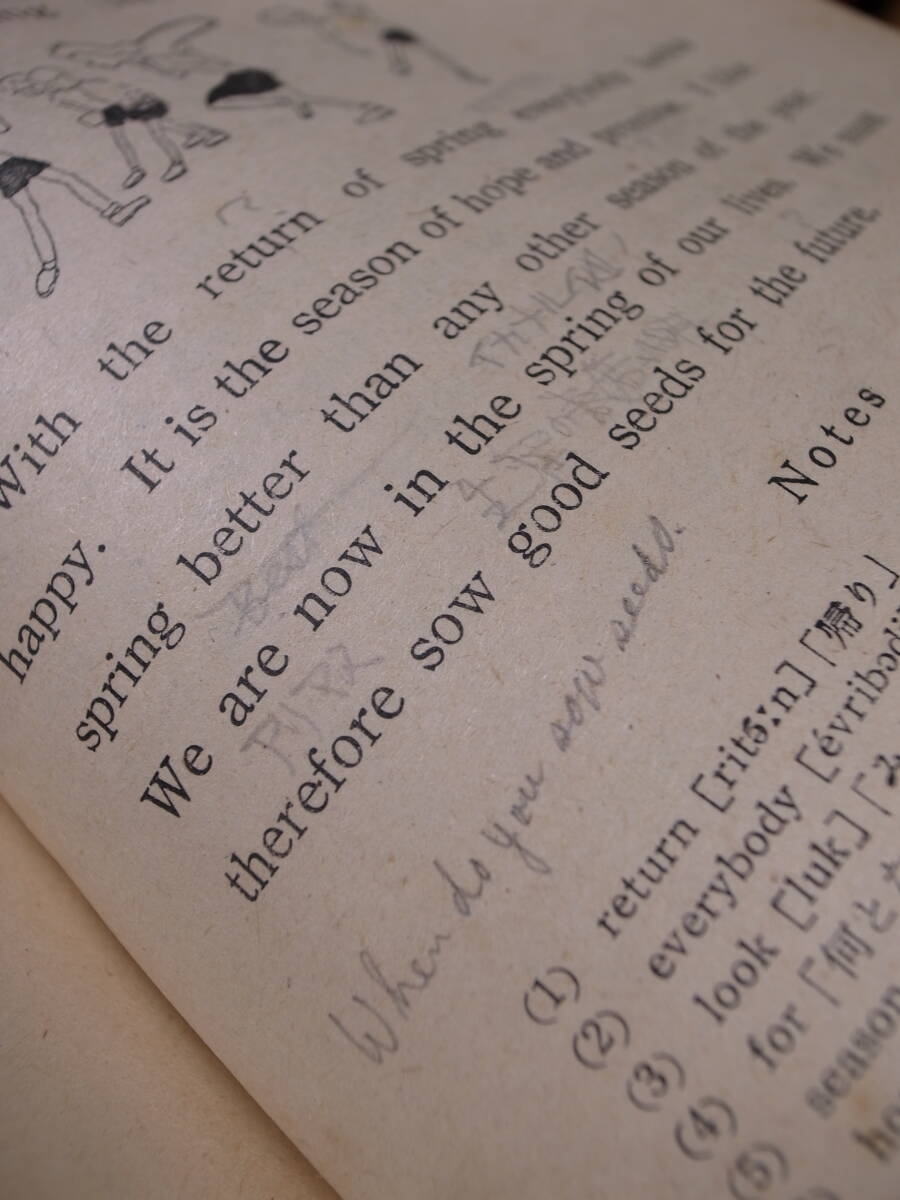 With the return of spring everybody looks
happy. It is the season of hope and promise. I like
spring better than any other season of the year.
Best
We are now in the spring of our lives. We must
therefore sow good seeds for the future.
When do you sow seeds.
Notes
(1) return [ritə́:n]「帰り」
(2) everybody [évribɔdi
(3) look [luk]「み
(4) for「何と
(5) season